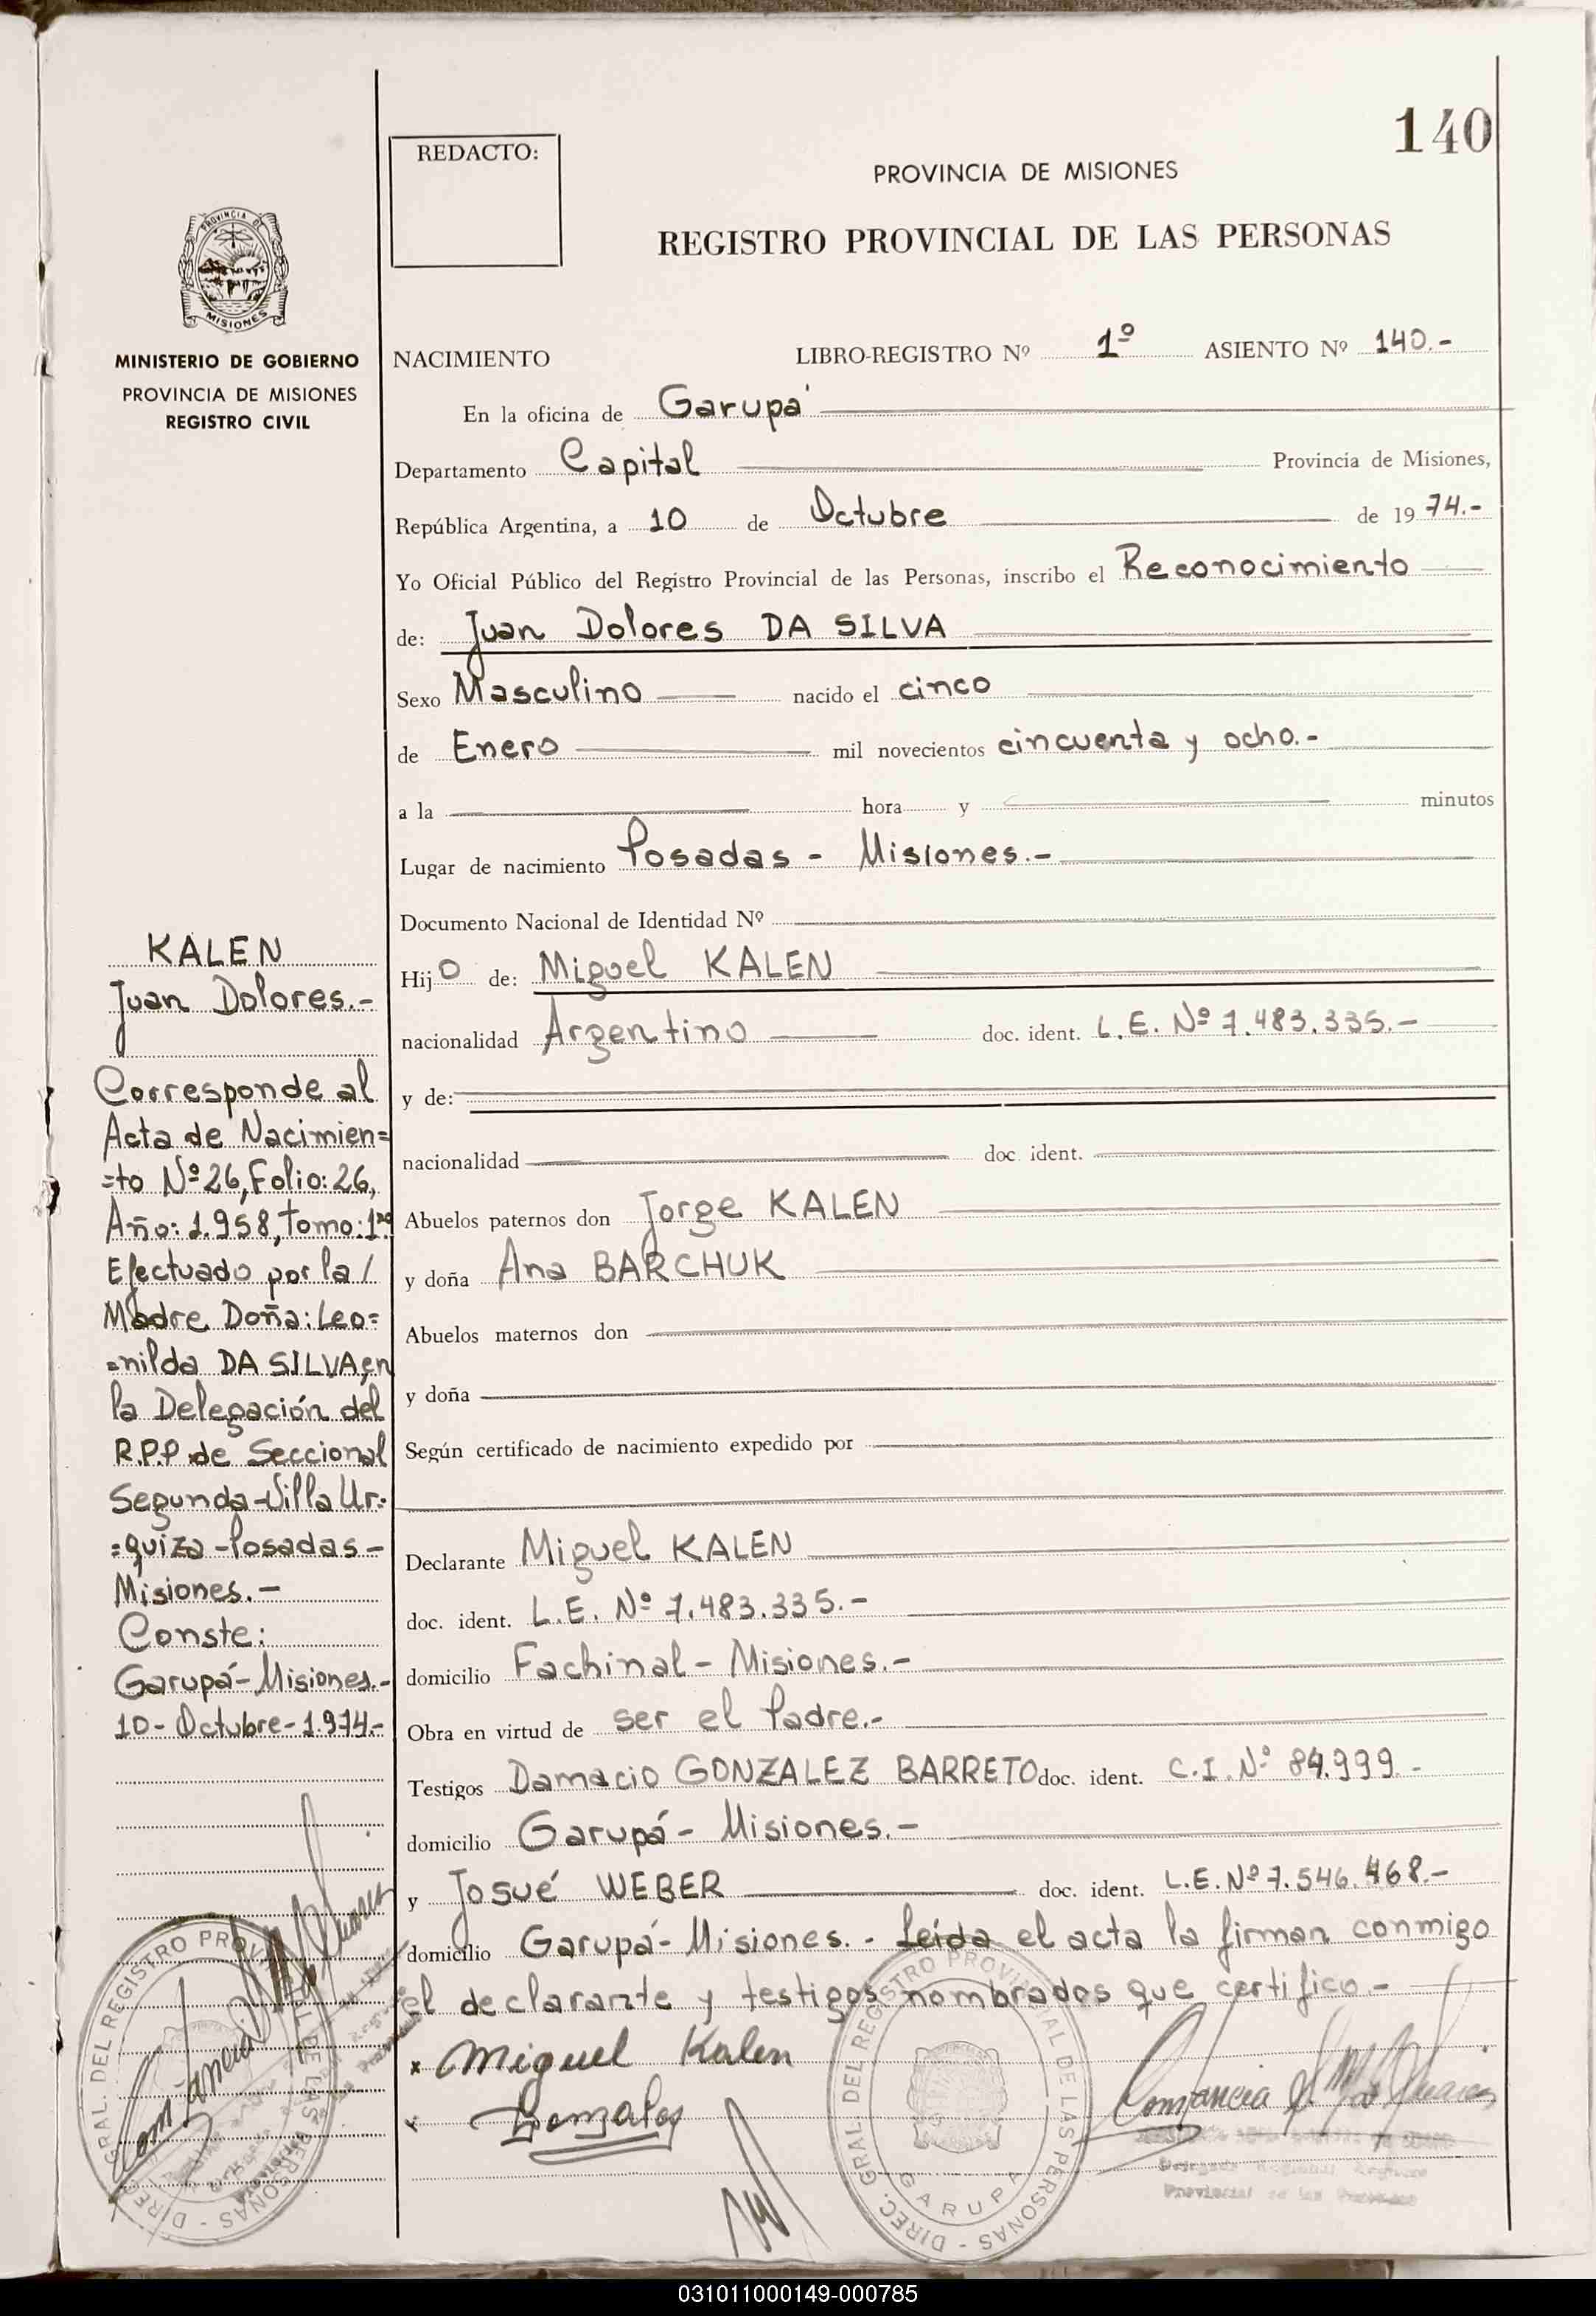 140
REDACTO:
PROVINCIA DE MISIONES
REGISTRO PROVINCIAL DE LAS PERSONAS
PROVINCIA DE
MISIONES
MINISTERIO DE GOBIERNO
PROVINCIA DE MISIONES
REGISTRO CIVIL
NACIMIENTO LIBRO-REGISTRO Nº 1º ASIENTO Nº 140.-
En la oficina de Garupá
Departamento Capital Provincia de Misiones,
República Argentina, a 10 de Octubre de 1974.-
Yo Oficial Público del Registro Provincial de las Personas, inscribo el Reconocimiento
de: Juan Dolores DA SILVA
Sexo Masculino nacido el cinco
de Enero mil novecientos cincuenta y ocho.-
a la hora y minutos
Lugar de nacimiento Posadas - Misiones.-
Documento Nacional de Identidad Nº
Hijo de: Miguel KALEN
nacionalidad Argentino doc. ident. L.E. Nº 7.483.335.-
y de:
nacionalidad doc. ident.
Abuelos paternos don Jorge KALEN
y doña Ana BARCHUK
Abuelos maternos don
y doña
Según certificado de nacimiento expedido por
Declarante Miguel KALEN
doc. ident. L.E. Nº 7.483.335.-
domicilio Fachinal - Misiones.-
Obra en virtud de ser el Padre.-
Testigos Damacio GONZALEZ BARRETO doc. ident. C.I. Nº 84.999.-
domicilio Garupá - Misiones.-
y Josué WEBER doc. ident. L.E. Nº 7.546.468.-
domicilio Garupá - Misiones. - Leída el acta la firman conmigo
el declarante y testigos nombrados que certifico.-
x Miguel Kalen
x Gonzales
DIREC. GRAL. DEL REGISTRO PROVINCIAL DE LAS PERSONAS -
GARUPA
Provincial de las Personas
KALEN
Juan Dolores.-
Corresponde al
Acta de Nacimien=
=to Nº 26, Folio: 26,
Año: 1.958, Tomo: 1ro
Efectuado por la/
Madre Doña: Leo=
=nilda DA SILVA, en
la Delegación del
R.P.P de Seccional
Segunda - Villa Ur=
=quiza - Posadas -
Misiones.-
Conste:
Garupá - Misiones.-
10 - Octubre - 1.974.-
DIREC. GRAL. DEL REGISTRO PROVINCIAL DE LAS PERSONAS -
031011000149-000785